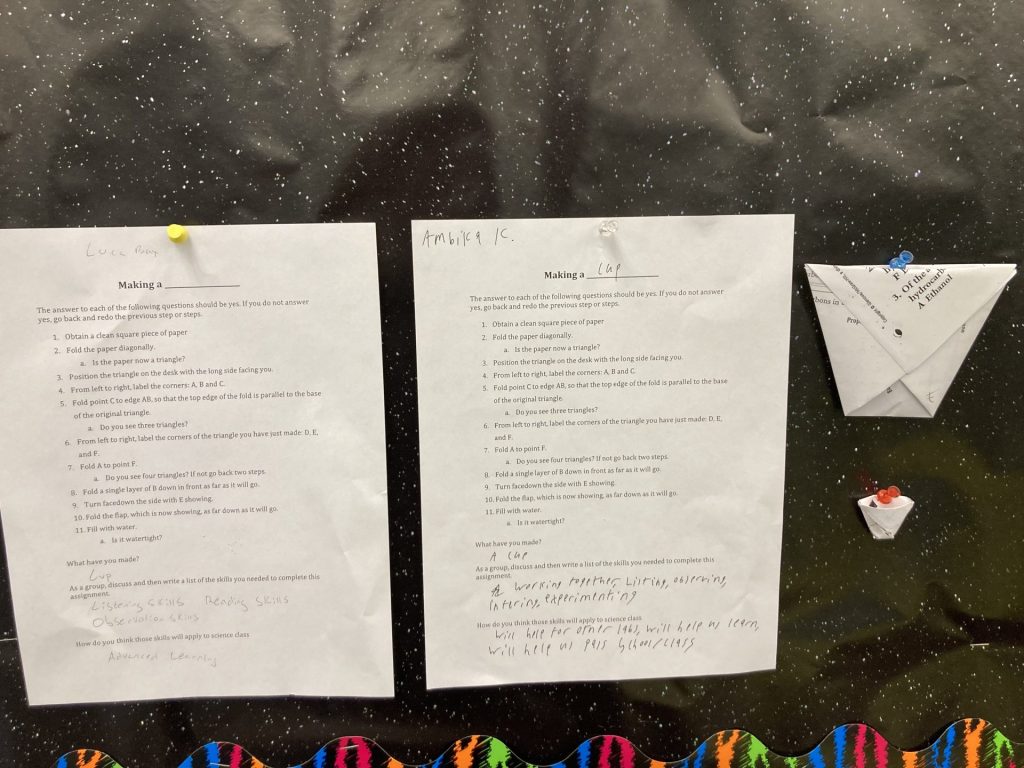 Luca
Making a ____________
The answer to each of the following questions should be yes. If you do not answer
yes, go back and redo the previous step or steps.
1. Obtain a clean square piece of paper
2. Fold the paper diagonally.
a. Is the paper now a triangle?
3. Position the triangle on the desk with the long side facing you.
4. From left to right, label the corners: A, B and C.
5. Fold point C to edge AB, so that the top edge of the fold is parallel to the base
of the original triangle.
a. Do you see three triangles?
6. From left to right, label the corners of the triangle you have just made: D, E,
and F.
7. Fold A to point F.
a. Do you see four triangles? If not go back two steps.
8. Fold a single layer of B down in front as far as it will go.
9. Turn facedown the side with E showing.
10. Fold the flap, which is now showing, as far down as it will go.
11. Fill with water.
a. Is it watertight?
What have you made?
Cup
As a group, discuss and then write a list of the skills you needed to complete this
assignment.
Listening skills Reading skills
Observation skills
How do you think those skills will apply to science class
Advanced Learning
Ambika K.
Making a Cup
The answer to each of the following questions should be yes. If you do not answer
yes, go back and redo the previous step or steps.
1. Obtain a clean square piece of paper
2. Fold the paper diagonally.
a. Is the paper now a triangle?
3. Position the triangle on the desk with the long side facing you.
4. From left to right, label the corners: A, B and C.
5. Fold point C to edge AB, so that the top edge of the fold is parallel to the base
of the original triangle.
a. Do you see three triangles?
6. From left to right, label the corners of the triangle you have just made: D, E,
and F.
7. Fold A to point F.
a. Do you see four triangles? If not go back two steps.
8. Fold a single layer of B down in front as far as it will go.
9. Turn facedown the side with E showing.
10. Fold the flap, which is now showing, as far down as it will go.
11. Fill with water.
a. Is it watertight?
What have you made?
A cup
As a group, discuss and then write a list of the skills you needed to complete this
assignment.
working together, Listing, observing,
Infering, experimenting
How do you think those skills will apply to science class
will help for other labs, will help us learn,
will help us pass school/class
3. Of the
hydrocarb
A Ethanol
bons in
Prop
E